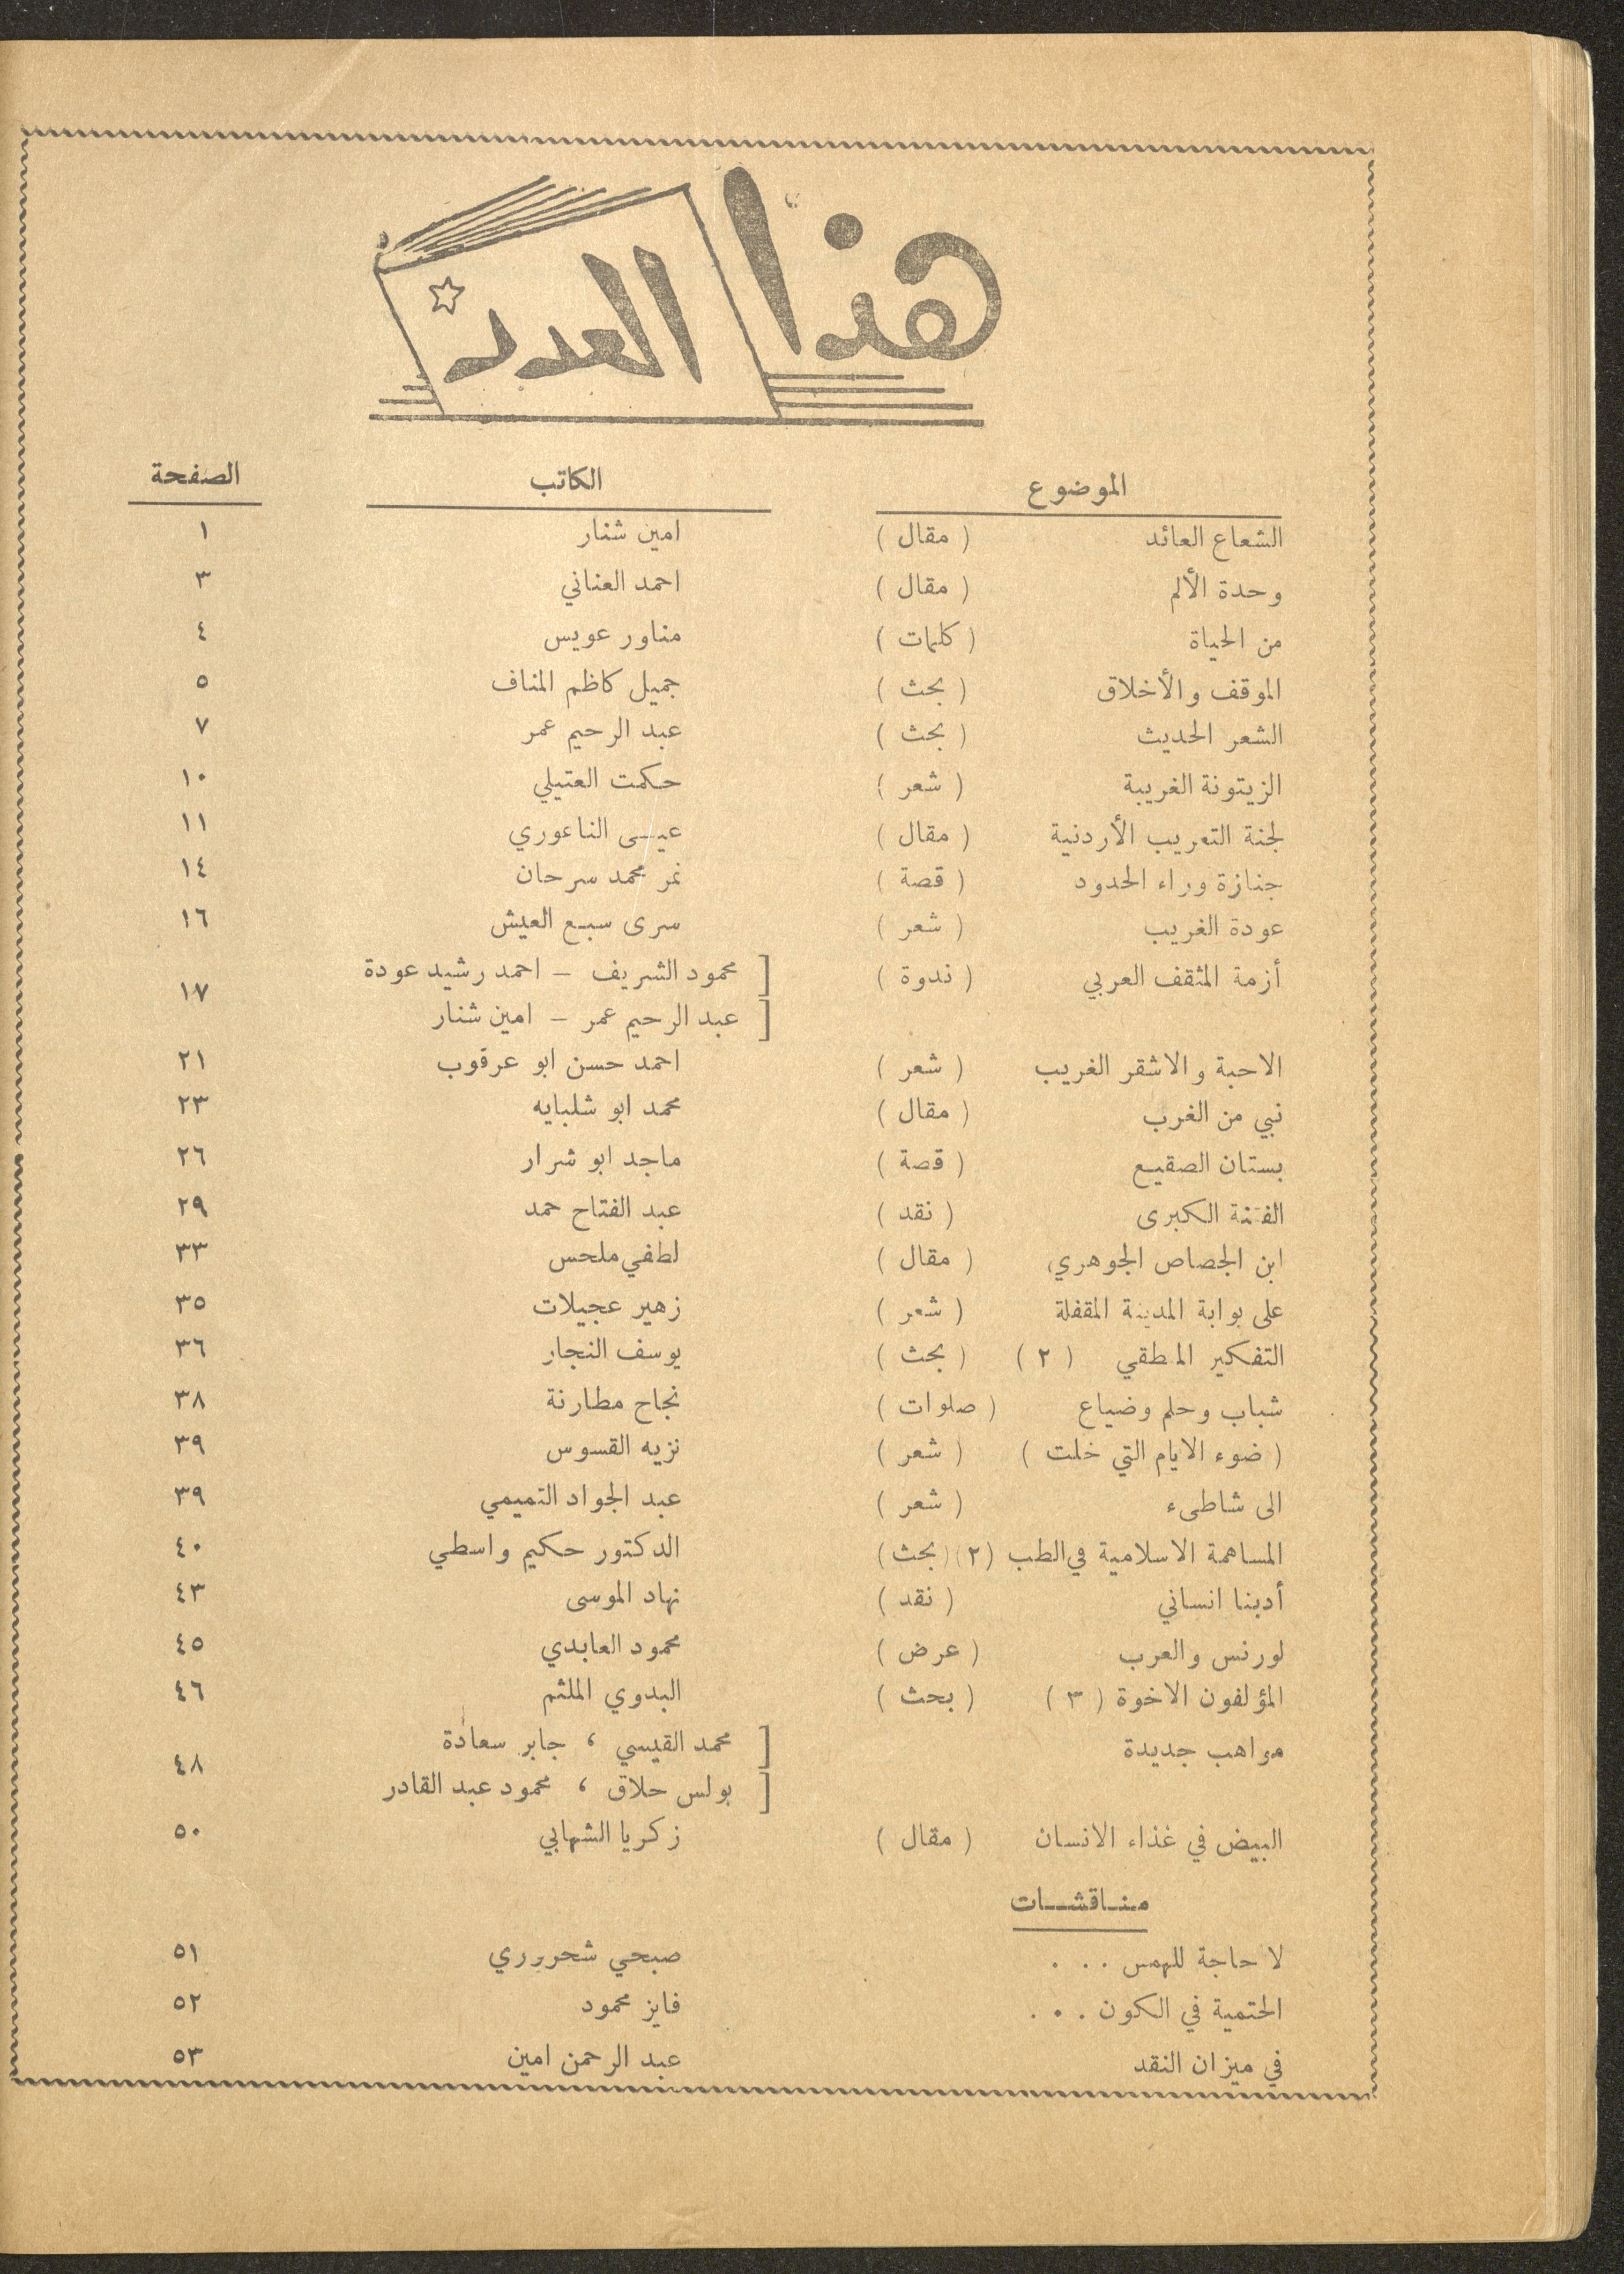 هذا العدد
الموضوع الكاتب الصفحة
الشعاع العائد ( مقال ) امين شنار ١
وحدة الألم ( مقال ) احمد العناني ٣
من الحياة ( كلمات ) مناور عويس ٤
الموقف والأخلاق ( بحث ) جميل كاظم المناف ٥
الشعر الحديث ( بحث ) عبد الرحيم عمر ٧
الزيتونة الغريبة ( شعر ) حكمت العتيلي ١٠
لجنة التعريب الأردنية ( مقال ) عيسى الناعوري ١١
جنازة وراء الحدود ( قصة ) نمر محمد سرحان ١٤
عودة الغريب ( شعر ) سرى سبع العيش ١٦
أزمة المثقف العربي ( ندوة ) [ محمود الشريف – احمد رشيد عودة ١٧
[ عبد الرحيم عمر – امين شنار
الاحبة والاشقر الغريب ( شعر ) احمد حسن ابو عرقوب ٢١
نبي من الغرب ( مقال ) محمد ابو شلبايه ٢٣
بستان الصقيع ( قصة ) ماجد ابو شرار ٢٦
الفتنة الكبرى ( نقد ) عبد الفتاح حمد ٢٩
ابن الجصاص الجوهري ( مقال ) لطفي ملحس ٣٣
على بوابة المدينة المقفلة ( شعر ) زهير عجيلات ٣٥
التفكير المطقي ( ٢ ) ( بحث ) يوسف النجار ٣٦
شباب وحلم وضياع ( صلوات ) نجاح مطارنة ٣٨
( ضوء الايام التي خلت ) ( شعر ) نزيه القسوس ٣٩
الى شاطىء ( شعر ) عبد الجواد التميمي ٣٩
المساهمة الاسلامية في الطب (٢) (بحث) الدكتور حكيم واسطي ٤٠
أدبنا انساني ( نقد ) نهاد الموسى ٤٣
لورنس والعرب ( عرض ) محمود العابدي ٤٥
المؤلفون الاخوة ( ٣ ) ( بحث ) البدوي الملثم ٤٦
مواهب جديدة [ محمد القيسي ، جابر سعادة ٤٨
[ بولس حلاق ، محمود عبد القادر
البيض في غذاء الانسان ( مقال ) زكريا الشهابي ٥٠
منـاقشـات
لا حاجة للهمس . . . صبحي شحروري ٥١
الحتمية في الكون . . . فايز محمود ٥٢
في ميزان النقد عبد الرحمن امين ٥٣